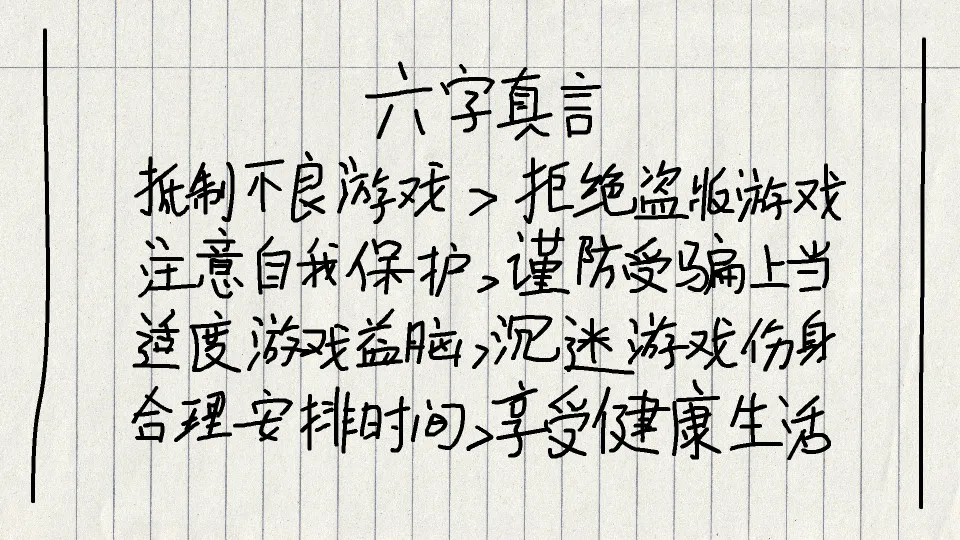 六字真言
抵制不良游戏,拒绝盗版游戏
注意自我保护,谨防受骗上当
适度游戏益脑,沉迷游戏伤身
合理安排时间,享受健康生活